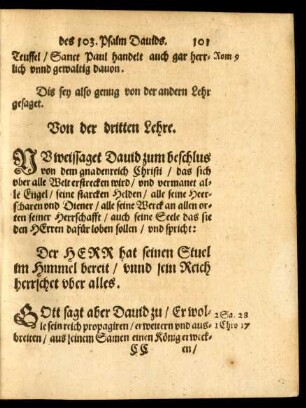 des 103. Psalm Dauids. 101
Teuffel / Sanct Paul handelt auch gar herr- Rom 9
lich vnnd gewaltig dauon.
Dis sey also genug von der andern Lehr
gesaget.
Von der dritten Lehre.
NVweissaget Dauid zum beschlus
von dem gnadenreich Christi / das sich
vber alle Welt erstrecken wird / vnd vermanet al-
le Engel / seine starcken Helden / alle seine Herr-
scharen vnd Diener / alle seine Werck an allen or-
ten seiner Herrschafft / auch seine Seele das sie
den HErren dafür loben sollen / vnd spricht:
Der HERR hat seinen Stuel
im Himmel bereit / vnnd sein Reich
herrschet vber alles.
GOtt sagt aber Dauid zu / Er wol- 2 Sa. 28
le sein reich propagiren / erweitern vnd aus- 1 Chro 17
breiten / aus seinem Samen einen König erweck-
CC en /